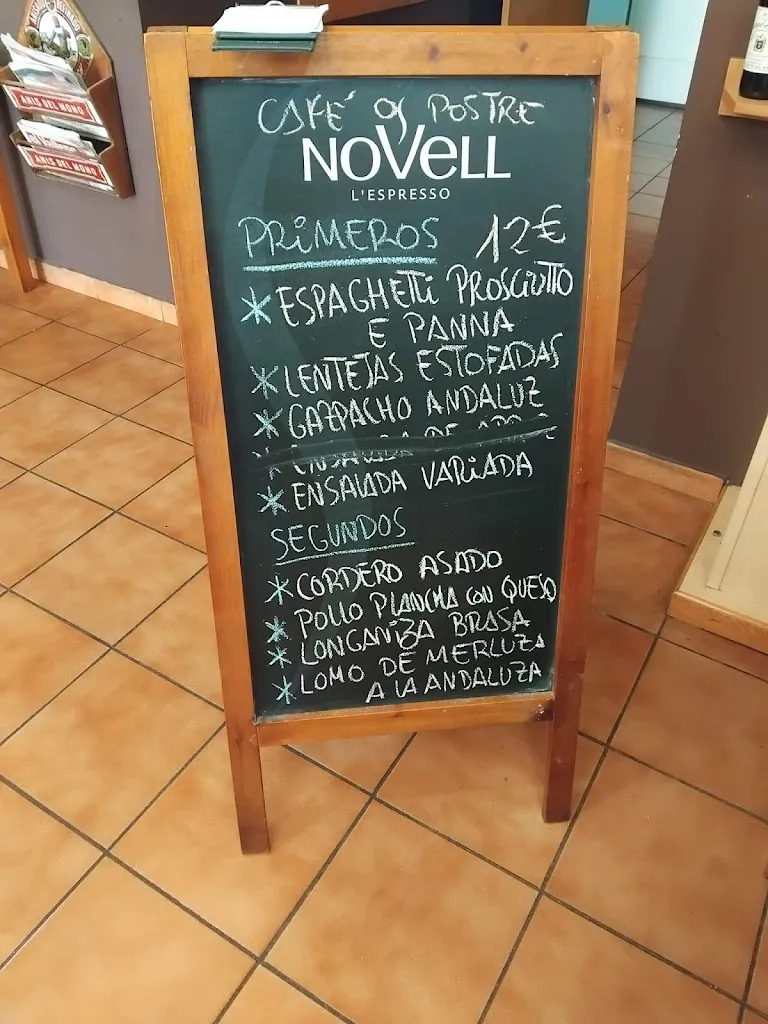 CAFÉ o POSTRE
NOVELL
L'ESPRESSO
PRIMEROS 12€
* ESPAGHETTI PROSCIUTTO
E PANNA
* LENTEJAS ESTOFADAS
* GAZPACHO ANDALUZ
* ENSALADA DE
* ENSALADA VARIADA
SEGUNDOS
* CORDERO ASADO
* POLLO PLANCHA CON QUESO
* LONGANIZA BRASA
* LOMO DE MERLUZA
A LA ANDALUZA
ANIS DEL MONO
ANIS DEL MONO